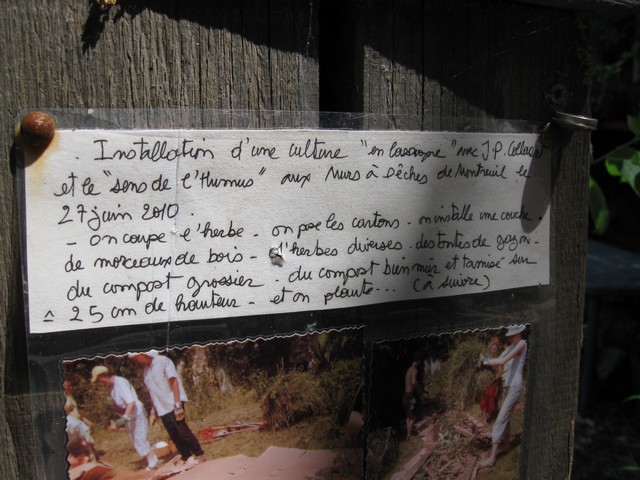 . Installation d'une culture "en lasagne" avec J.P. Collaert
et le "sens de l'Humus" aux Murs à Pêches de Montreuil le
27 juin 2010.
- on coupe l'herbe - on pose les cartons - on installe une couche
de morceaux de bois - d'herbes diverses - des tontes de gazon -
du compost grossier - du compost bien mûr et tamisé sur
25 cm de hauteur - et on plante... (à suivre)